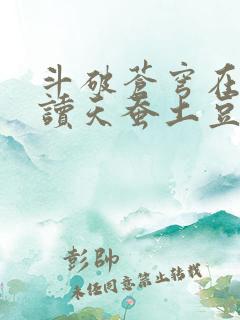 斗破苍穹在
读天蚕土豆
彭帅
未经同意禁止转载